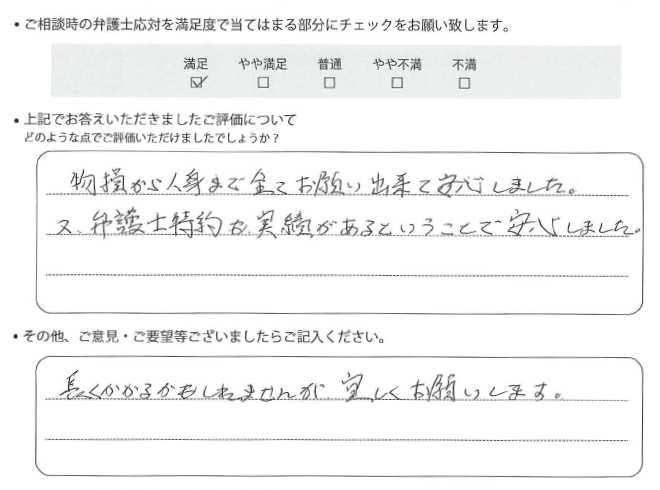 • ご相談時の弁護士応対を満足度で当てはまる部分にチェックをお願い致します。
満足 やや満足 普通 やや不満 不満
☑ ☐ ☐ ☐ ☐
• 上記でお答えいただきましたご評価について
どのような点でご評価いただけましたでしょうか？
物損から人身まで全てお願い出来て安心しました。
又、弁護士特約も、実績があるということで安心しました。
• その他、ご意見・ご要望等ございましたらご記入ください。
長くかかるかもしれませんが、宜しくお願いします。